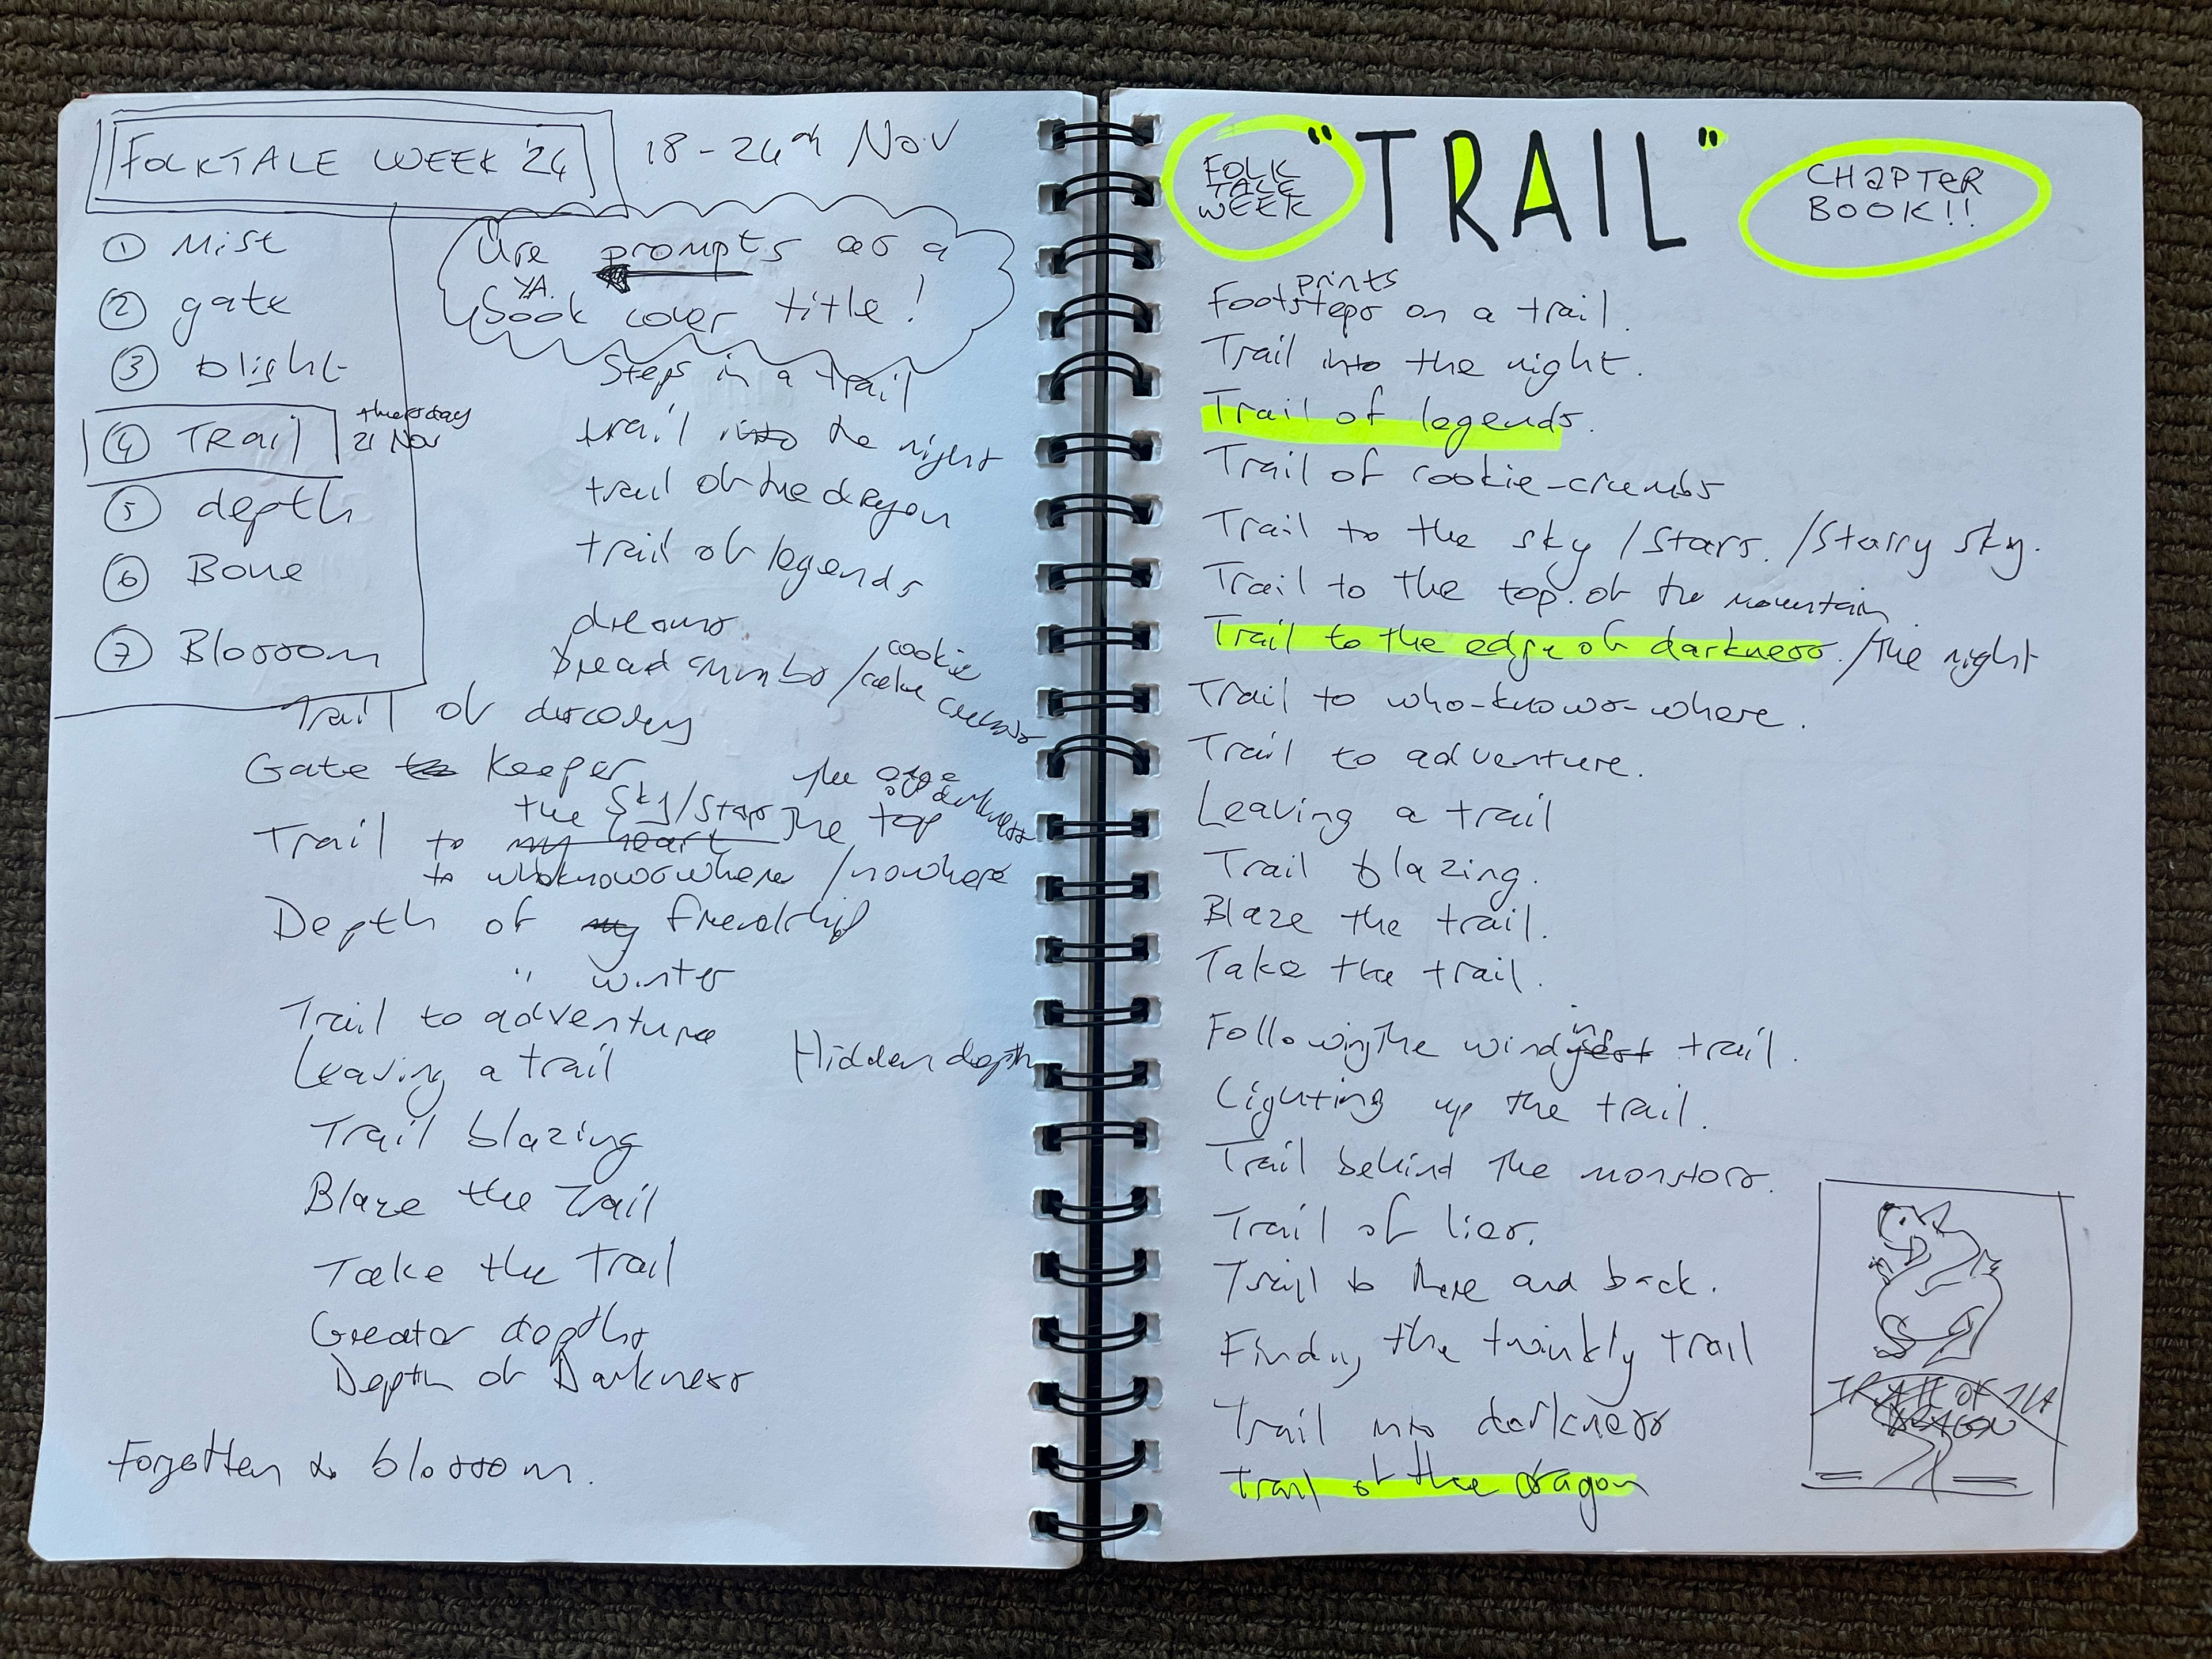 FOLKTALE WEEK '24
18 - 24th Nov
① Mist
② gate
③ blight
④ TRail
thursday
21 Nov
⑤ depth
⑥ Bone
⑦ Blossom
Use prompts as a
YA.
book cover title!
Steps in a trail
trail into the night
trail of the dragon
trail of legends
dreams
bread crumbs / cookie
cake crumbs
Trail of discovery
Gate keeper
the sky/stars the edge
of darkness
Trail to my heart the top
to whoknowswhere /nowhere
Depth of my friendship
" winter
Trail to adventure
Leaving a trail
Hidden depth
Trail blazing
Blaze the Trail
Take the Trail
Greater depths
Depth of Darkness
Forgotten blossom.
FOLK
TALE
WEEK
"TRAIL"
CHAPTER
BOOK!!
prints
Footsteps on a trail.
Trail into the night.
Trail of legends.
Trail of cookie-crumbs
Trail to the sky /stars. /starry sky.
Trail to the top of the mountain
Trail to the edge of darkness. /the night
Trail to who-knows-where.
Trail to adventure.
Leaving a trail
Trail blazing.
Blaze the trail.
Take the trail.
Following the winding trail.
Lighting up the trail.
Trail behind the monsters.
Trail of lies.
Trail to there and back.
Finding the twinkly trail
Trail into darkness
Trail of the dragon
TRAIL OF THE
DRAGON